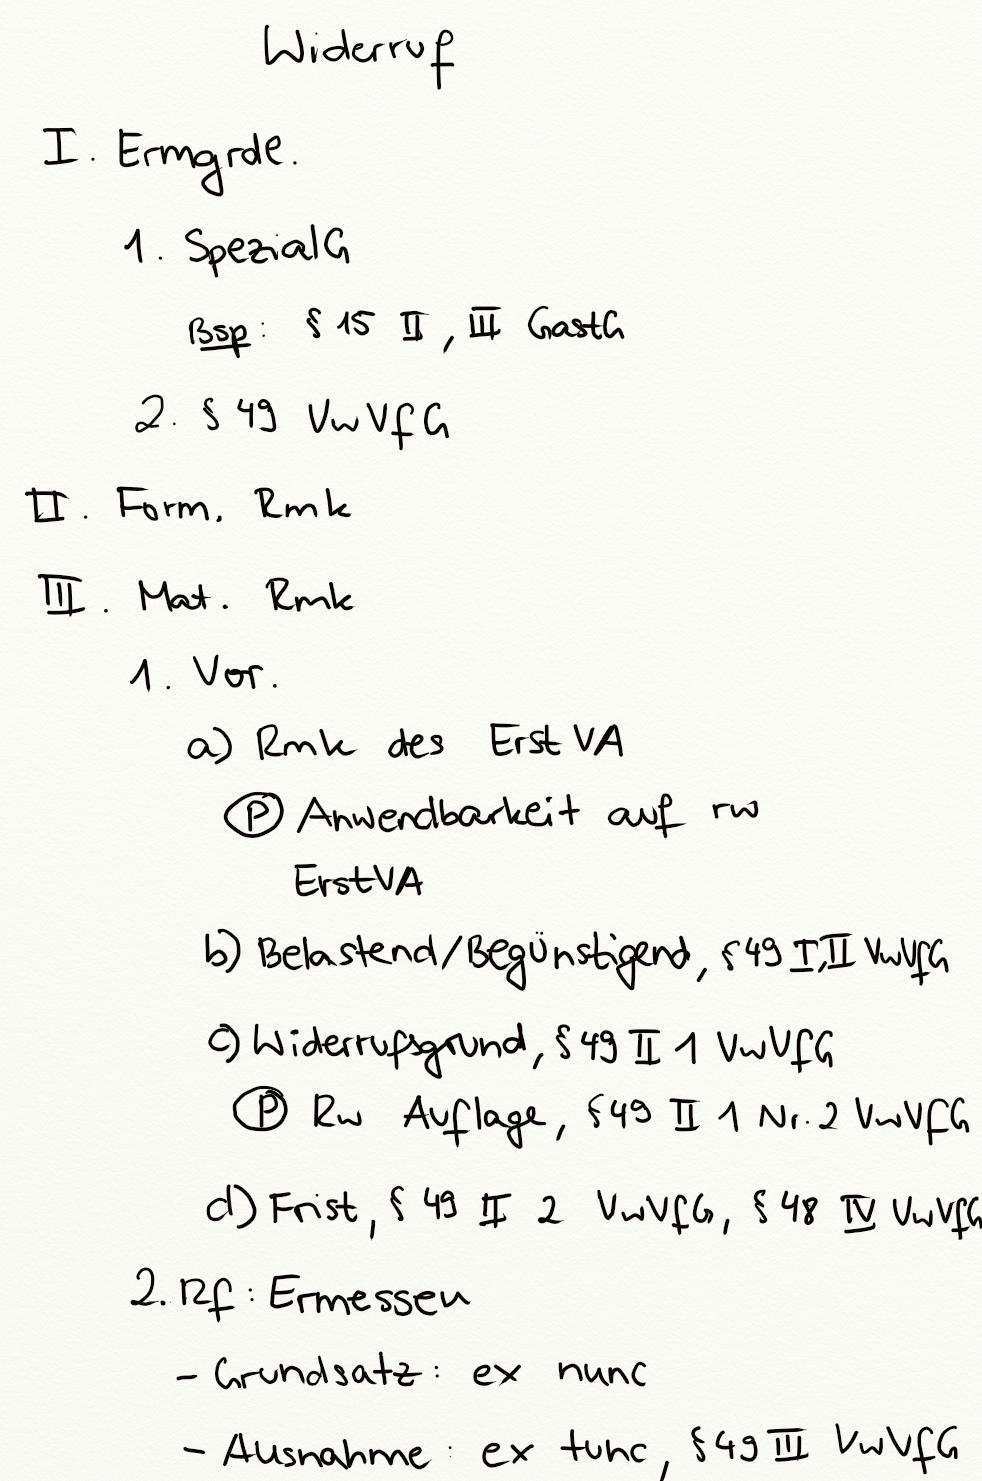 Widerruf
I. Ermgrde.
1. SpezialG
Bsp: § 15 II, III GastG
2. § 49 VwVfG
II. Form. Rmk
III. Mat. Rmk
1. Vor.
a) Rmk des ErstVA
(P) Anwendbarkeit auf rw
ErstVA
b) Belastend/Begünstigend, § 49 I, II VwVfG
c) Widerrufsgrund, § 49 II 1 VwVfG
(P) Rw Auflage, § 49 II 1 Nr. 2 VwVfG
d) Frist, § 49 II 2 VwVfG, § 48 IV VwVfG
2. Rf: Ermessen
- Grundsatz: ex nunc
- Ausnahme: ex tunc, § 49 III VwVfG